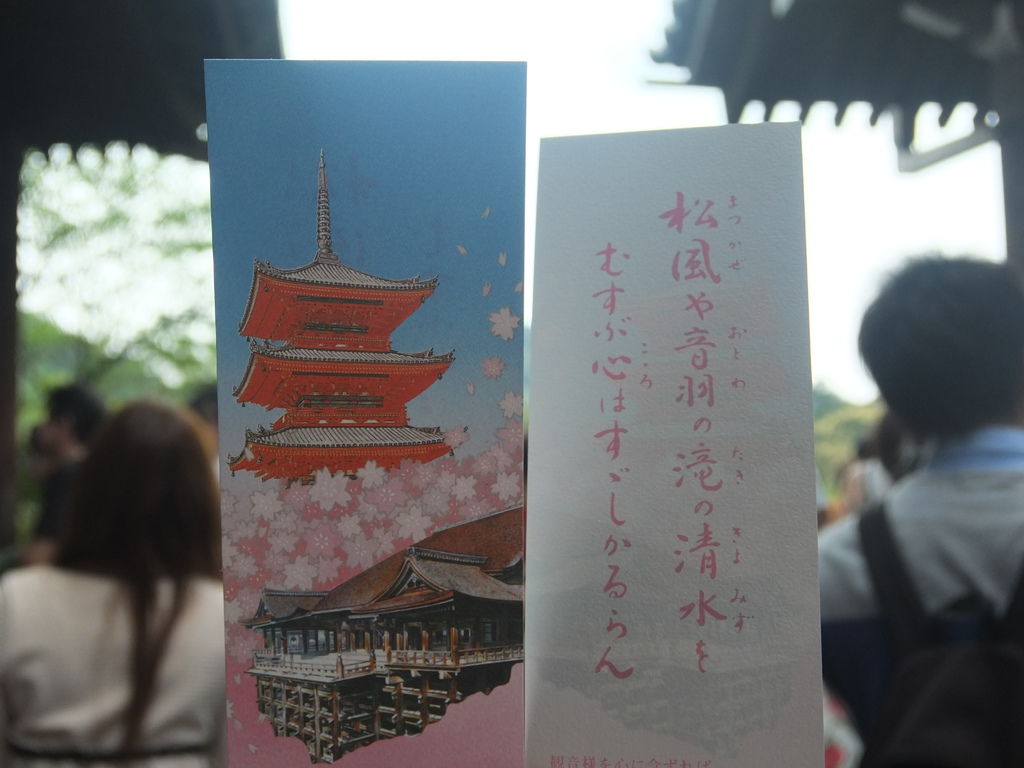 松風や音羽の滝の清水を
まつかぜ おとわ たき きよみず
むすぶ心はすゞしかるらん
こころ
観音様を心に念ずれば